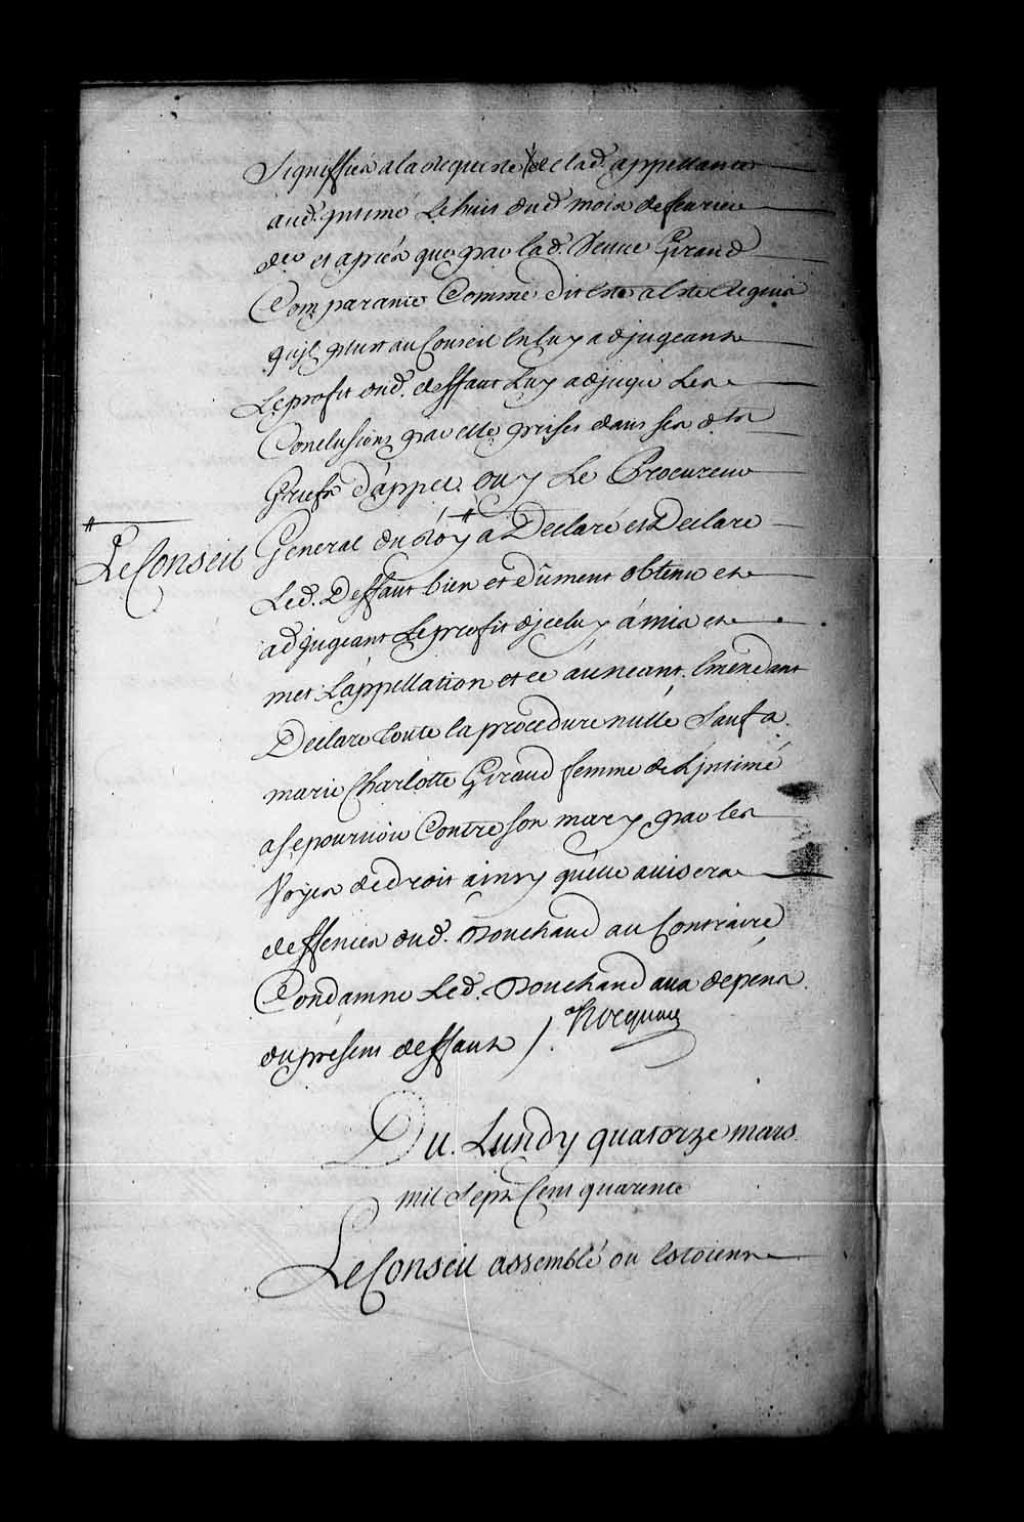 Signiffiéz a la Requeste de lad. appellante
aud. Intimé Le huit dud. mois de feurier
der et aprés que par lad. Veuue Giraud
Comparante Comme dit est a esté Requis
qu'jl plust au Conseil en luy adjugeant
Le profit dud. deffaut Luy adjuger Les
Conclusions par elle prises dans ses dts
Griefs d'appel. ouy Le Procureur
General du Roy # a Declaré et Declare
# Le Conseil
Led. Deffaut bien et düment obtenu et
adjugeant Le profit d'jceluy á mis et
met L'appellation et ce au neant. Emendant
Declare toute la procedure nulle Sauf a
marie Charlotte Giraud femme de L'jntimé
a se pouruoir Contre son mary par les
Voyes de droit ainsy qu'elle auisera
deffences dud. Bouchaud au Contraire
Condamne Led. Bouchaud aux depens
du present deffaut /. Hocquart
Du Lundy quatorze mars
mil Sept Cent quarente
Le Conseil assemblé ou Estoient